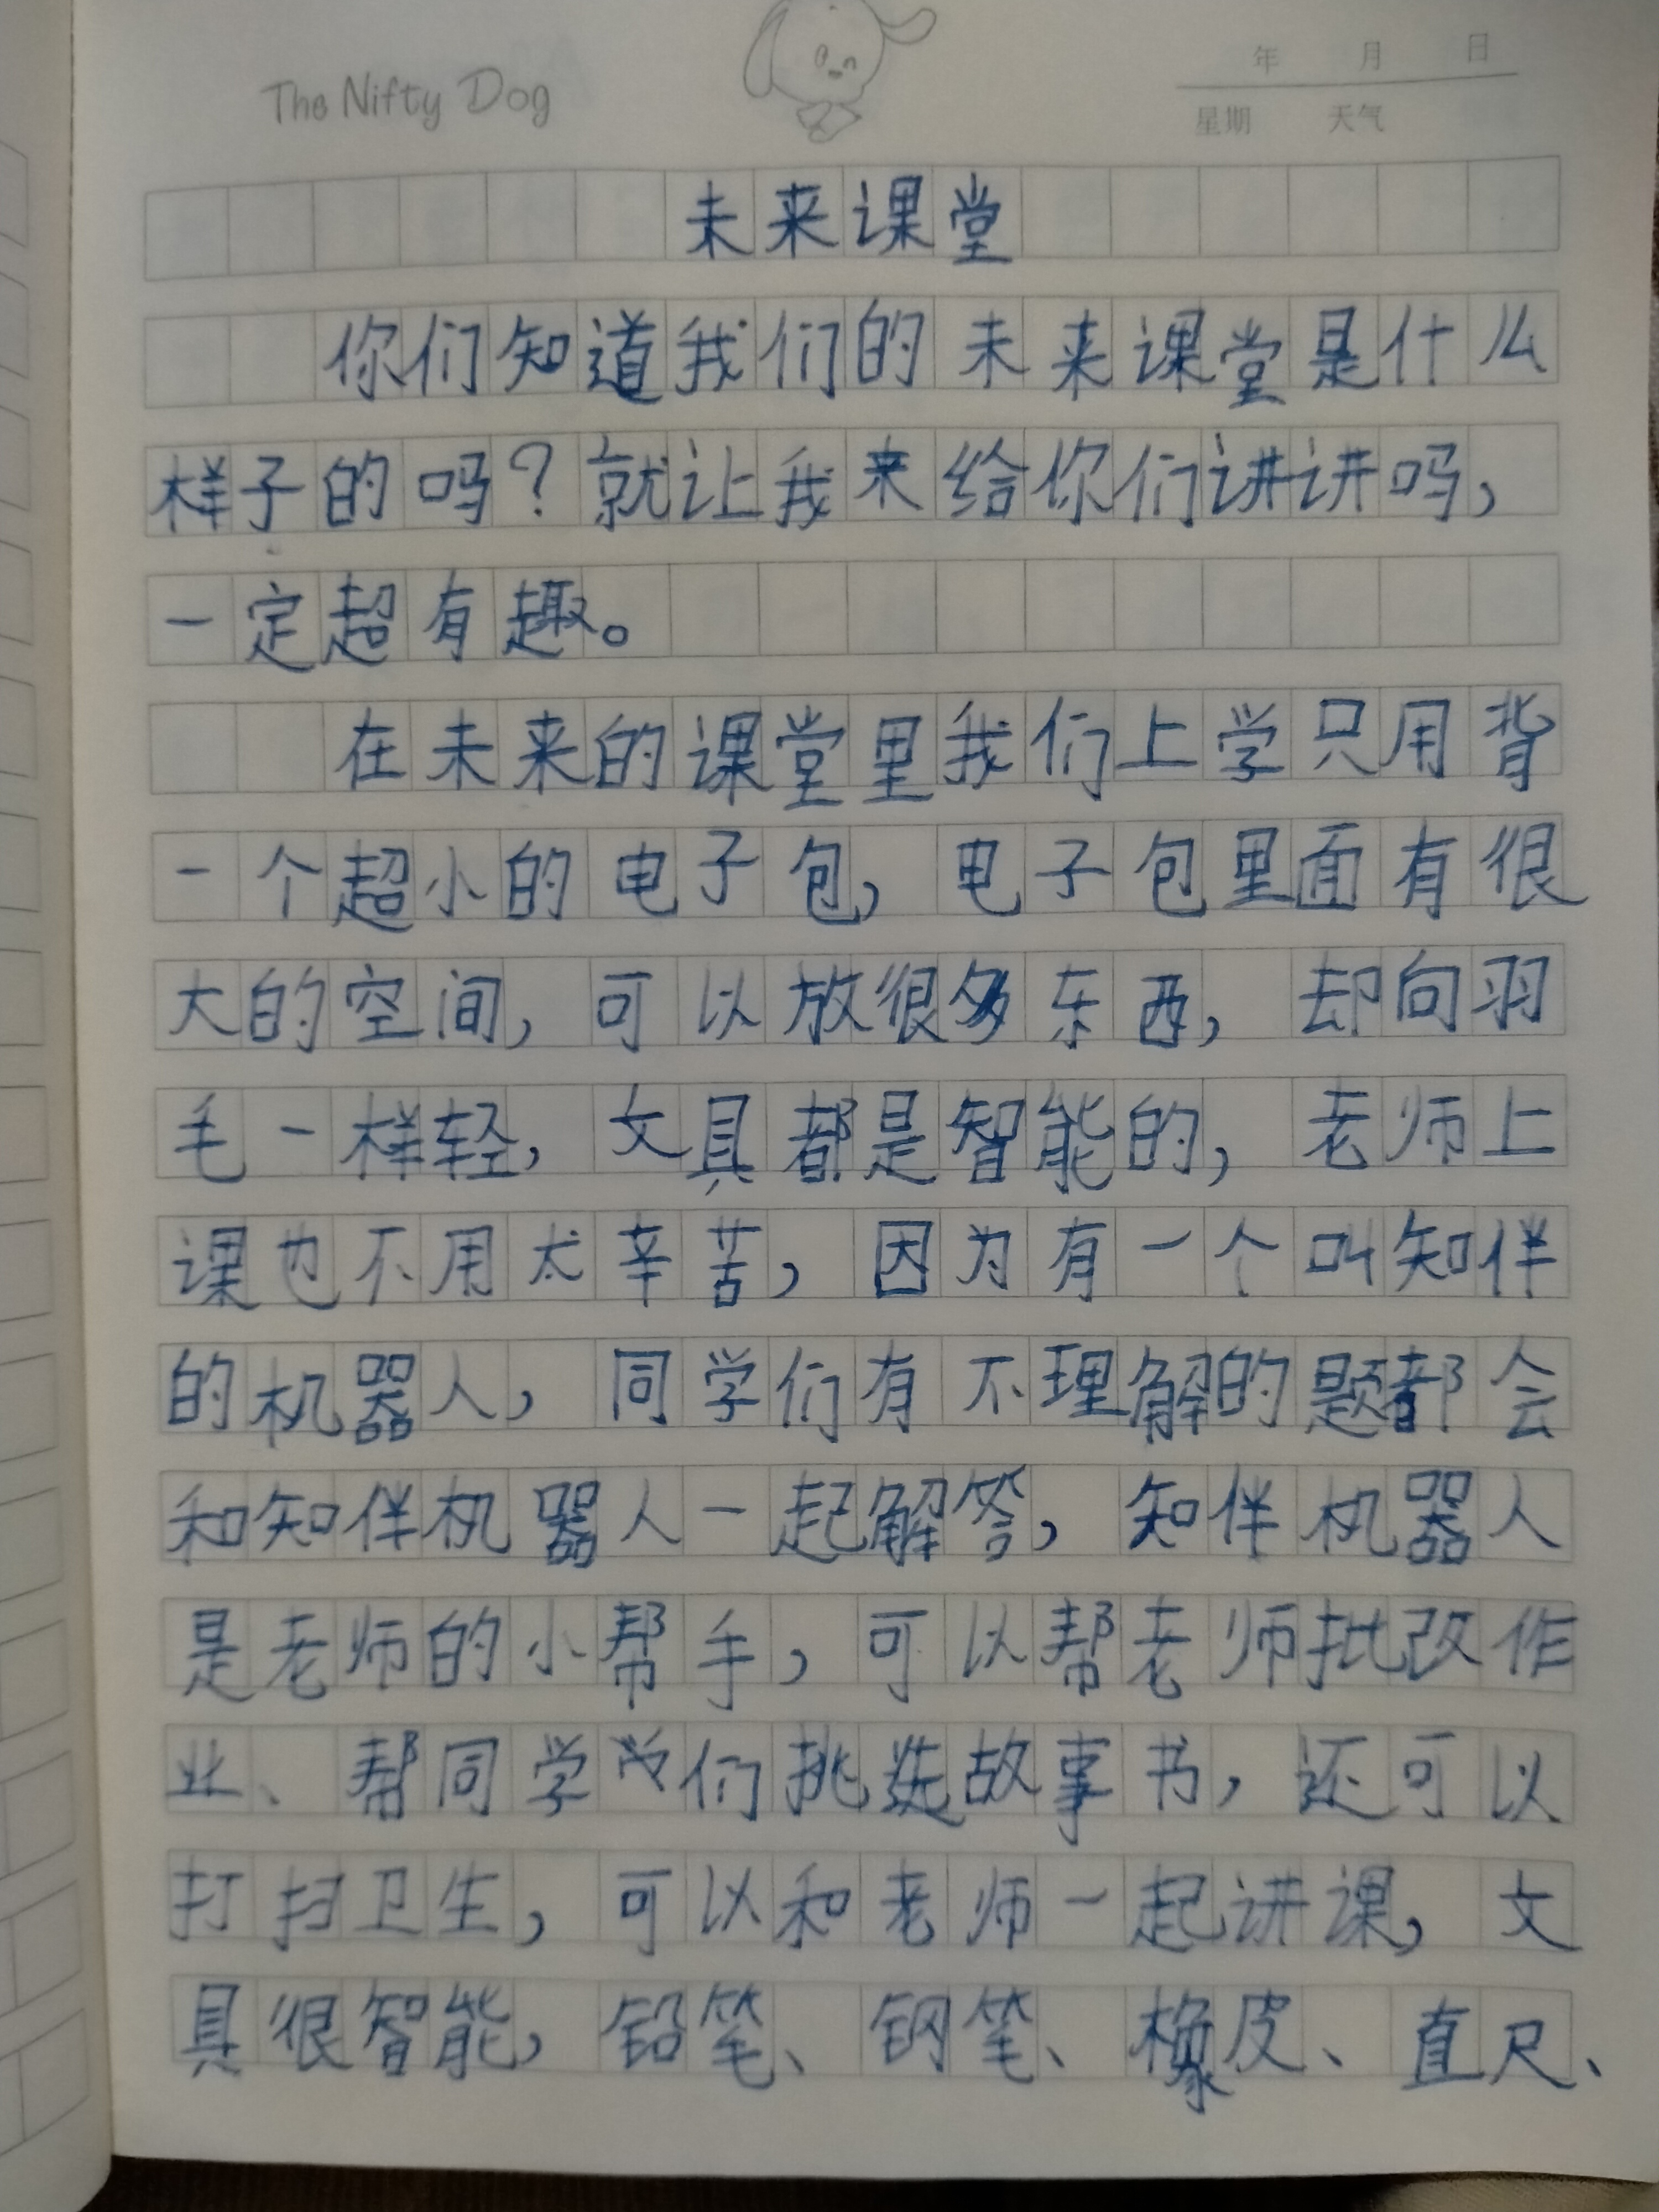 The Nifty Dog
年 月 日
星期 天气
未来课堂
你们知道我们的未来课堂是什么
样子的吗？就让我来给你们讲讲吗，
一定超有趣。
在未来的课堂里我们上学只用背
一个超小的电子包，电子包里面有很
大的空间，可以放很多东西，却向羽
毛一样轻，文具都是智能的，老师上
课也不用太辛苦，因为有一个叫知伴
的机器人，同学们有不理解的题都会
和知伴机器人一起解答，知伴机器人
是老师的小帮手，可以帮老师批改作
业、帮同学们挑选故事书，还可以
打扫卫生，可以和老师一起讲课，文
具很智能，铅笔、钢笔、橡皮、直尺、